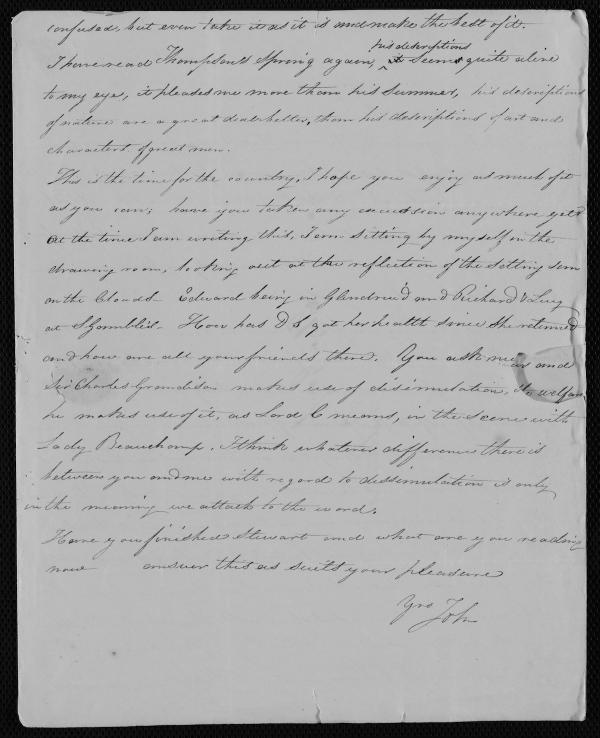 confused, but even take it as it is and make the best of it.
his descriptions
I have read Thompson's Spring again, seems quite alive
to my eyes, it pleases me more than his Summer, his descriptions
of nature are a great deal better, than his descriptions of art and
characters of great men.
This is the time for the country, I hope you enjoy as much of it
as you can; have you taken any excursion anywhere yet?
At the time I am writing this, I am sitting by myself in the
drawing room, looking out at the reflection of the setting sun
on the Clouds - Edward being in and Richard & Lucy
at - How has D S got her health since she returned
and how are all your friends there. You ask me and
Sir Charles Grandison makes use of dissimulation,
he makes use of it, as Lord C means, in the scene with
Lady Beauchamp. I think whatever difference there is
between you and me with regard to dissimulation is only
in the meaning we attach to the word.
Have you finished Stewart and what are you reading
now answer this as suits your pleasure
Yrs John